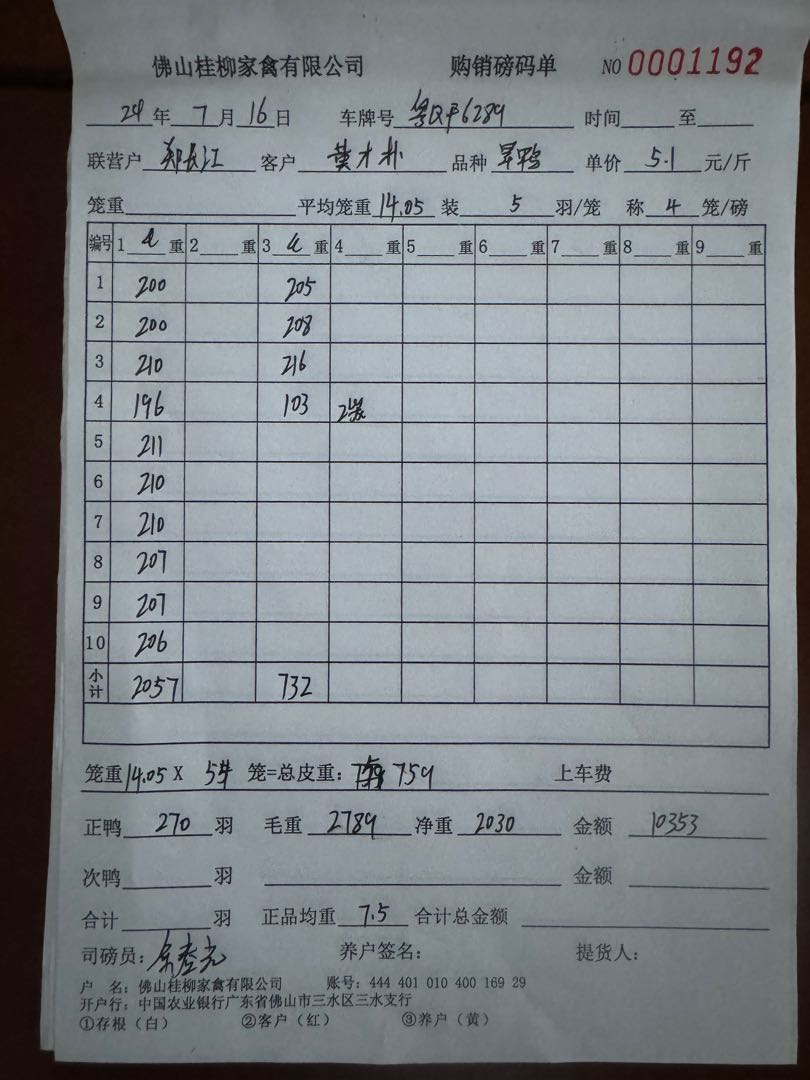 佛山桂柳家禽有限公司 购销磅码单 NO 0001192
24年 7月 16日 车牌号 6289 时间 至
联营户 郑长江 客户 黄才朴 品种 旱鸭 单价 5.1 元/斤
笼重 平均笼重 14.05 装 5 羽/笼 称 4 笼/磅
编号 1 重 2 重 3 重 4 重 5 重 6 重 7 重 8 重 9 重
1 200 205
2 200 208
3 210 216
4 196 103 2笼
5 211
6 210
7 210
8 207
9 207
10 206
小计 2057 732
笼重 14.05 X 54 笼=总皮重: 759 上车费
正鸭 270 羽 毛重 2789 净重 2030 金额 10353
次鸭 羽 金额
合计 羽 正品均重 7.5 合计总金额
司磅员: 养户签名: 提货人:
户 名: 佛山桂柳家禽有限公司 账号: 444 401 010 400 169 29
开户行: 中国农业银行广东省佛山市三水区三水支行
①存根(白) ②客户(红) ③养户(黄)